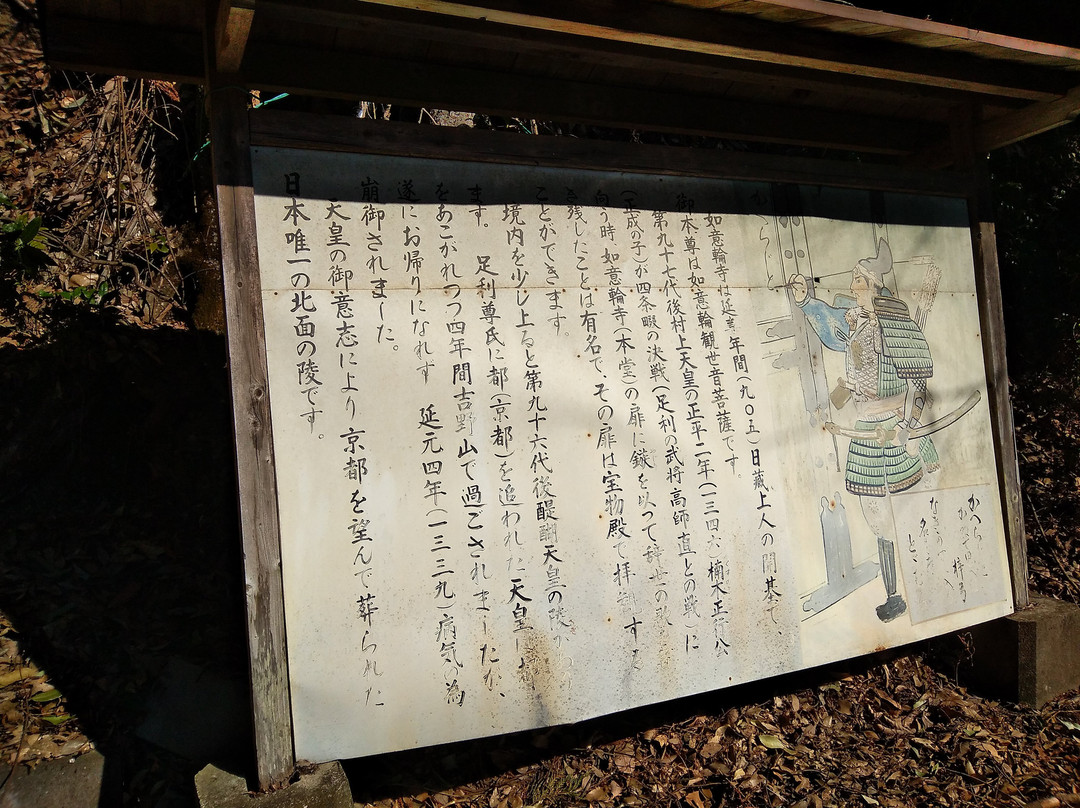 かへら
梓弓
名を
如意輪寺は延喜年間(九〇五)日蔵上人の開基で、
御本尊は如意輪観世音菩薩です。
第九十七代後村上天皇の正平二年(一三四六)楠木正行公
(正成の子)が四条畷の決戦(足利の武将高師直との戦)に
向う時、如意輪寺(本堂)の扉に鏃を以って辞世の歌
き残したことは有名で、その扉は宝物殿で拝観する
ことができます。
境内を少し上ると第九十六代後醍醐天皇の陵
ます。 足利尊氏に都(京都)を追われた天皇
をあこがれつつ四年間吉野山で過ごされましたが、
遂にお帰りになれず 延元四年(一三三九)病気の為
崩御されました。
天皇の御意志により京都を望んで葬られた
日本唯一の北面の陵です。